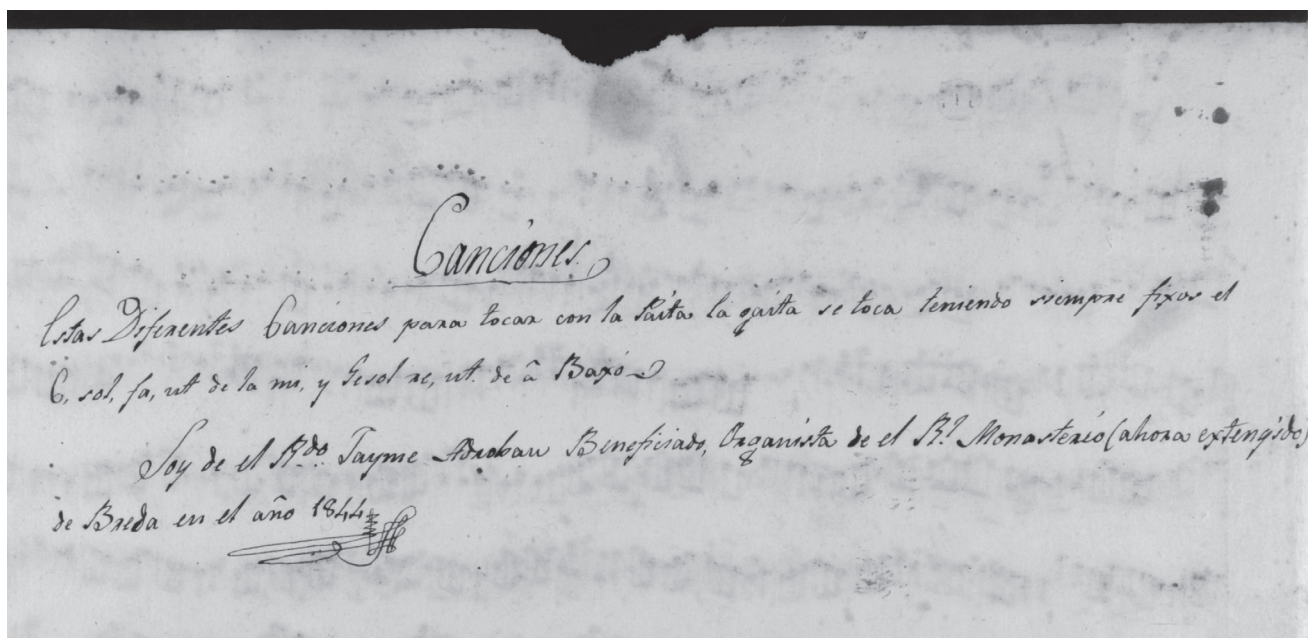 Canciones
Estas Diferentes Canciones para tocar con la Gaita la gaita se toca teniendo siempre fixos el
C, sol, fa, ut de la mi, y Gesol re, ut. de â Baxo
Soy de el Rdo. Jayme Adrobau Beneficiado, Organista de el Rl. Monasterio (ahora extengido)
de Breda en el año 1844